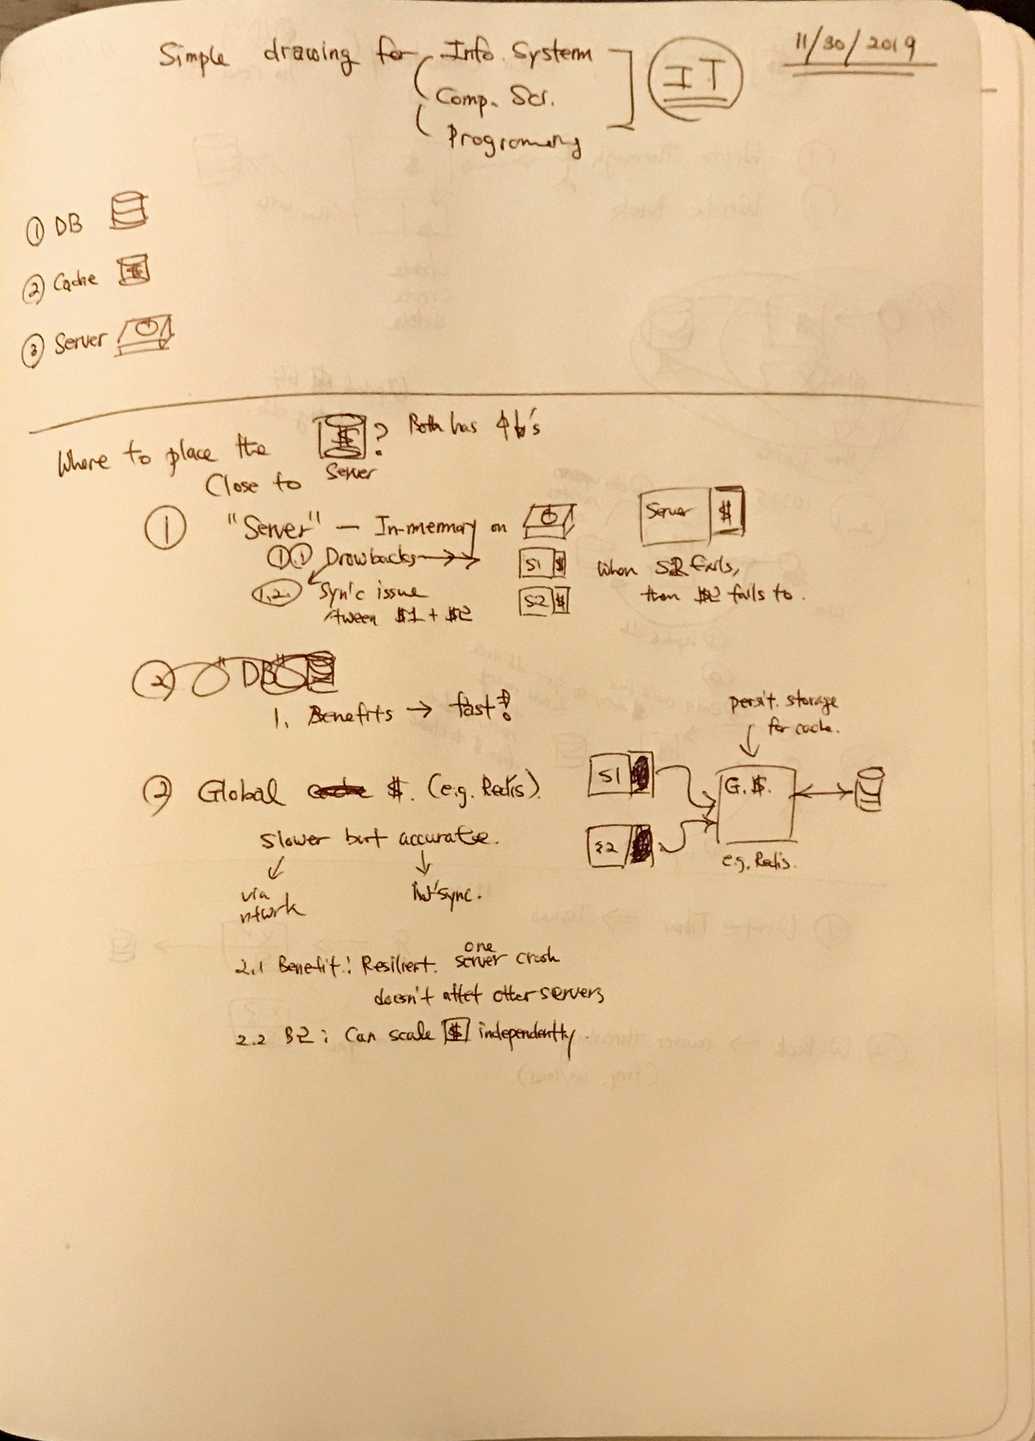 11/30/2019
Simple drawing for Info. Systerm
Comp. Sci.
Programing
IT
① DB
② Cache $
③ Server
Where to place the $? Both has
Close to Server
① "Server" — In-memory on
Server $
1.1 Drawbacks → S1 $ When S2 fails,
1.2. Sync issue S2 $ then $2 fails to.
tween $1 + $2
② "DB"
1. Benefits → fast!
persit. storage
for cache.
② Global $. (e.g. Redis).
S1
G.$.
S2
e.g. Redis.
slower but accurate.
via
ntwork
sync.
2.1 Benefit: Resilient. one server crash
doesn't affet other servers
2.2 B2: Can scale $ independently.